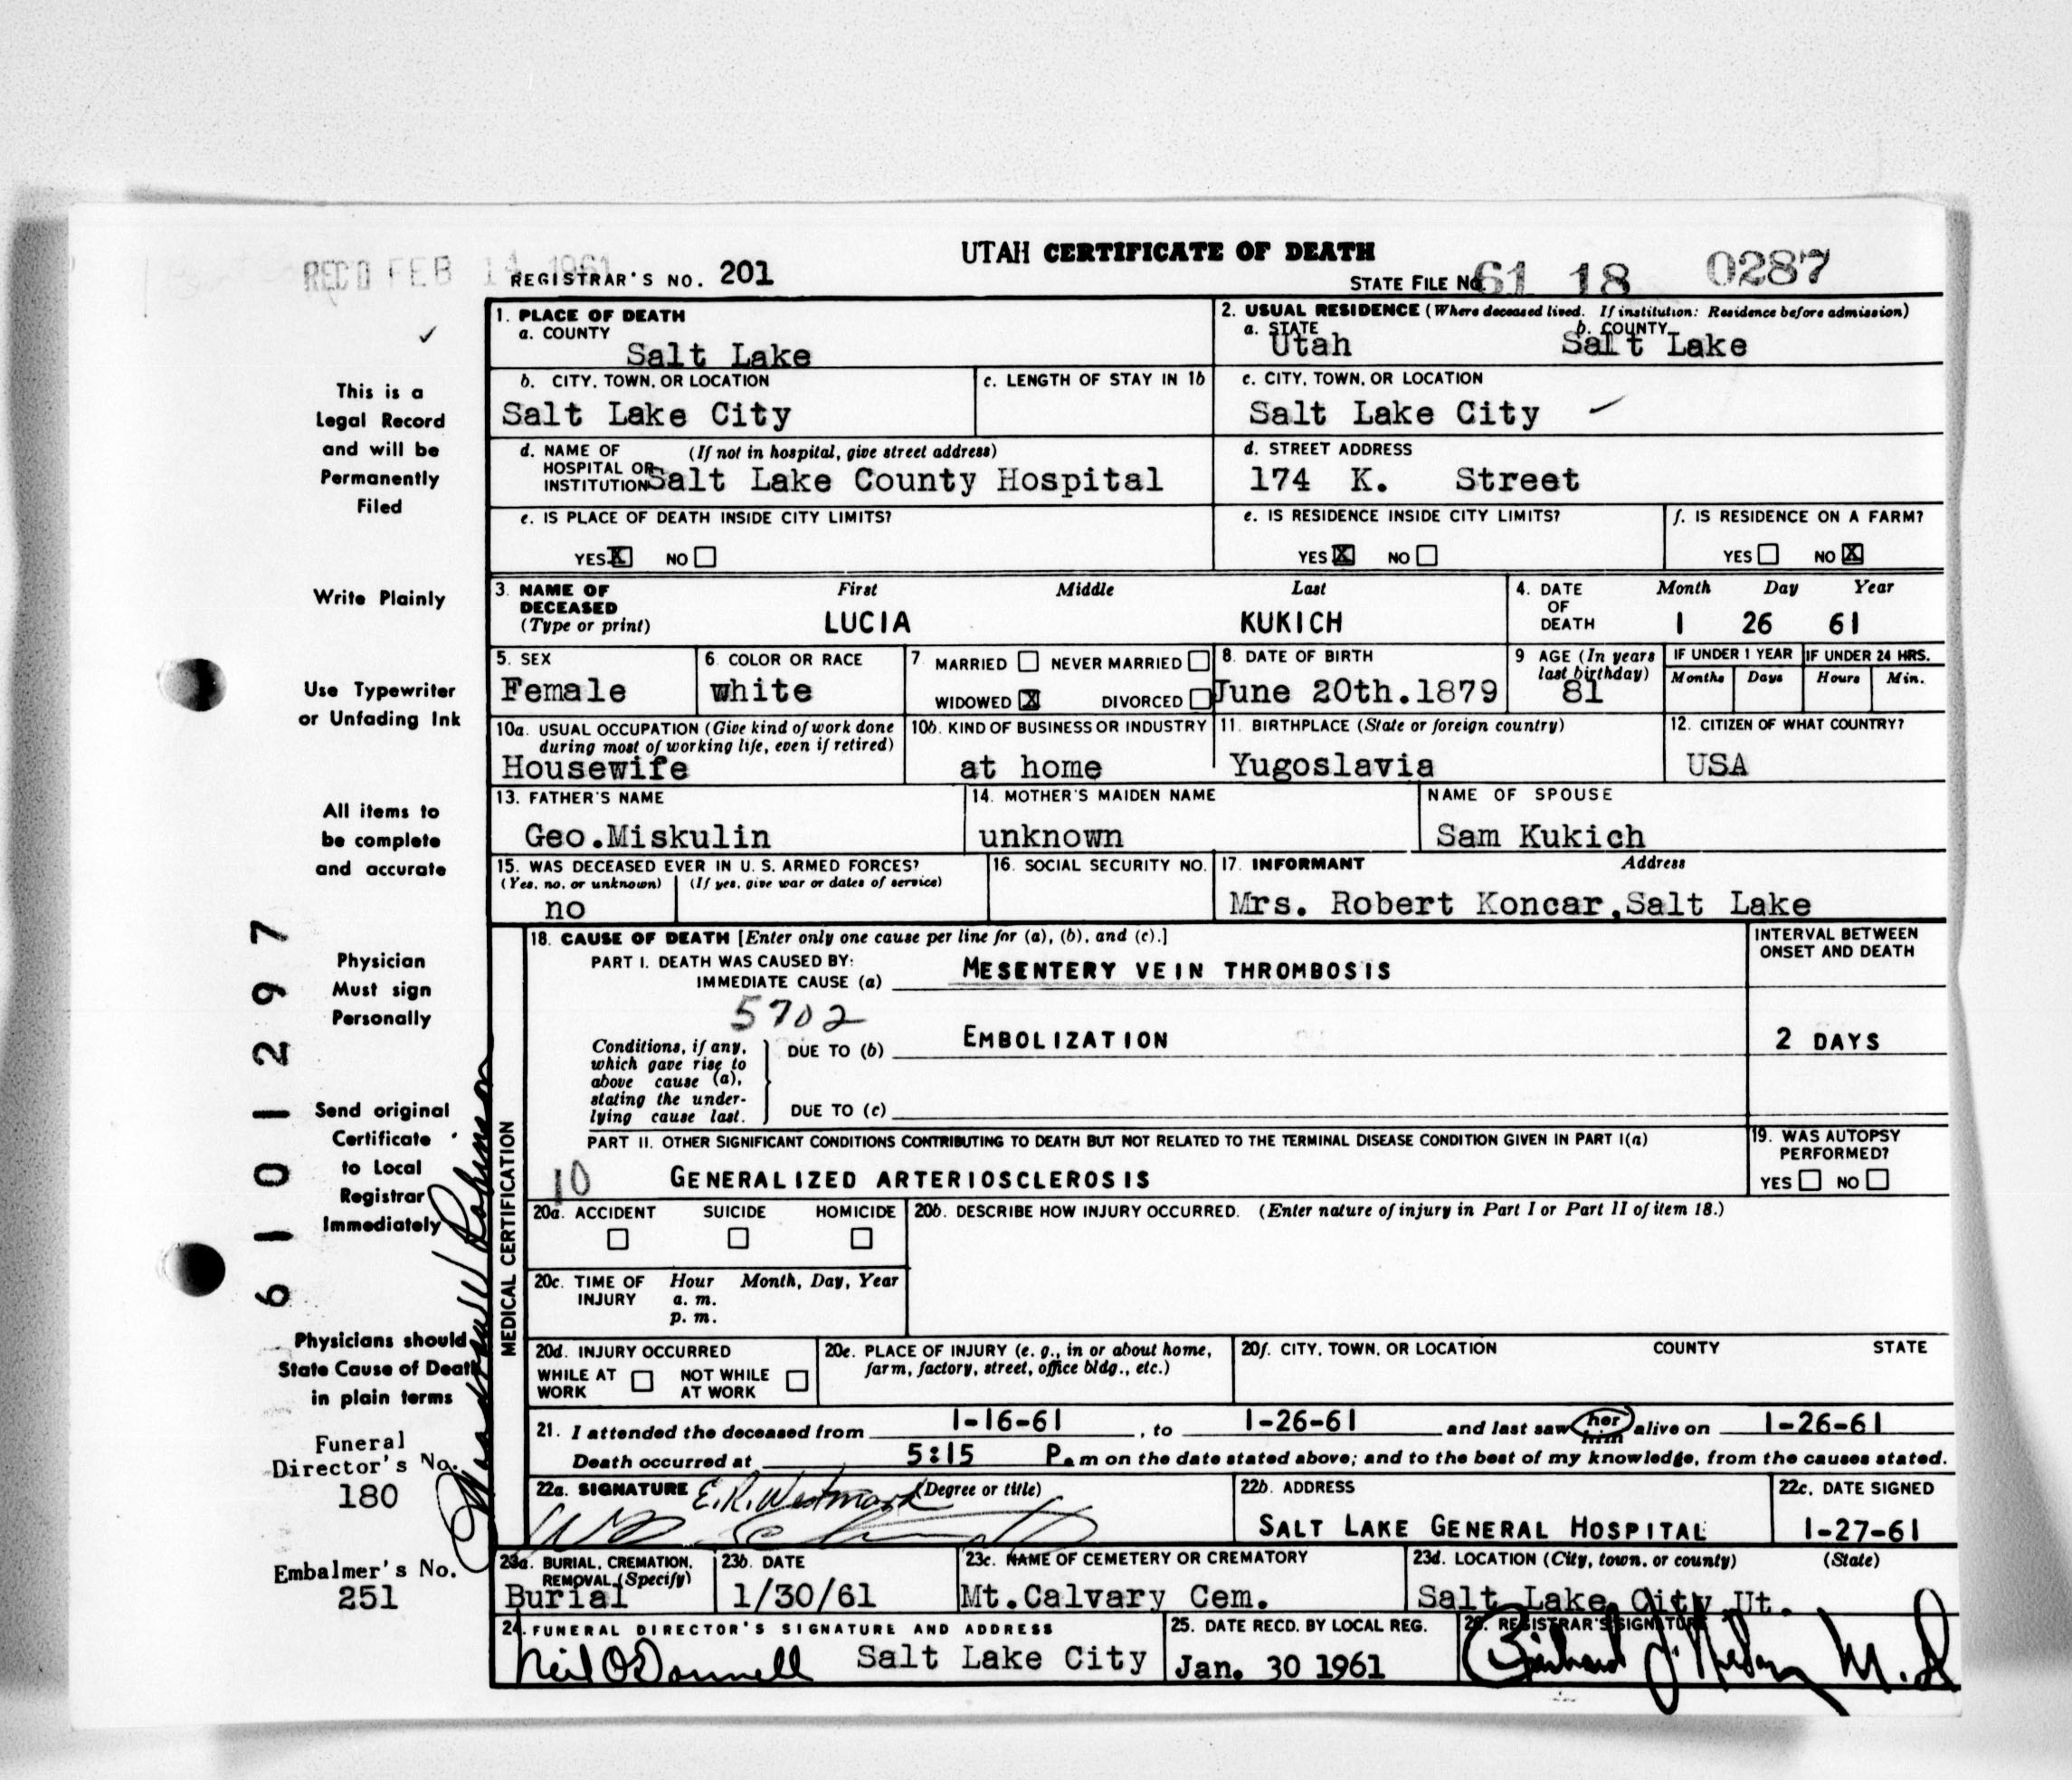 UTAH CERTIFICATE OF DEATH
REC'D FEB 14 1961
REGISTRAR'S NO. 201
STATE FILE NO. 61 18 0287
1. PLACE OF DEATH
a. COUNTY
Salt Lake
2. USUAL RESIDENCE (Where deceased lived. If institution: Residence before admission)
a. STATE
Utah
b. COUNTY
Salt Lake
b. CITY, TOWN, OR LOCATION
Salt Lake City
c. LENGTH OF STAY IN 1b
c. CITY, TOWN, OR LOCATION
Salt Lake City
d. NAME OF HOSPITAL OR INSTITUTION (If not in hospital, give street address)
Salt Lake County Hospital
d. STREET ADDRESS
174 K. Street
e. IS PLACE OF DEATH INSIDE CITY LIMITS?
YES X NO
e. IS RESIDENCE INSIDE CITY LIMITS?
YES X NO
f. IS RESIDENCE ON A FARM?
YES NO X
3. NAME OF DECEASED (Type or print)
First Middle Last
LUCIA KUKICH
4. DATE OF DEATH
Month Day Year
1 26 61
5. SEX
Female
6. COLOR OR RACE
white
7. MARRIED NEVER MARRIED
WIDOWED X DIVORCED
8. DATE OF BIRTH
June 20th.1879
9 AGE (In years last birthday)
81
IF UNDER 1 YEAR
Months Days
IF UNDER 24 HRS.
Hours Min.
10a. USUAL OCCUPATION (Give kind of work done during most of working life, even if retired)
Housewife
10b. KIND OF BUSINESS OR INDUSTRY
at home
11. BIRTHPLACE (State or foreign country)
Yugoslavia
12. CITIZEN OF WHAT COUNTRY?
USA
13. FATHER'S NAME
Geo.Miskulin
14. MOTHER'S MAIDEN NAME
unknown
NAME OF SPOUSE
Sam Kukich
15. WAS DECEASED EVER IN U. S. ARMED FORCES?
(Yes, no, or unknown) (If yes, give war or dates of service)
no
16. SOCIAL SECURITY NO.
17. INFORMANT Address
Mrs. Robert Koncar,Salt Lake
MEDICAL CERTIFICATION
18. CAUSE OF DEATH [Enter only one cause per line for (a), (b), and (c).]
INTERVAL BETWEEN ONSET AND DEATH
PART I. DEATH WAS CAUSED BY:
IMMEDIATE CAUSE (a) MESENTERY VEIN THROMBOSIS
5702
Conditions, if any, which gave rise to above cause (a), stating the underlying cause last.
DUE TO (b) EMBOLIZATION
2 DAYS
DUE TO (c)
PART II. OTHER SIGNIFICANT CONDITIONS CONTRIBUTING TO DEATH BUT NOT RELATED TO THE TERMINAL DISEASE CONDITION GIVEN IN PART I(a)
10 GENERALIZED ARTERIOSCLEROSIS
19. WAS AUTOPSY PERFORMED?
YES NO
20a. ACCIDENT SUICIDE HOMICIDE
20b. DESCRIBE HOW INJURY OCCURRED. (Enter nature of injury in Part I or Part II of item 18.)
20c. TIME OF INJURY Hour Month, Day, Year
a. m.
p. m.
20d. INJURY OCCURRED
WHILE AT WORK NOT WHILE AT WORK
20e. PLACE OF INJURY (e. g., in or about home, farm, factory, street, office bldg., etc.)
20f. CITY, TOWN, OR LOCATION COUNTY STATE
21. I attended the deceased from 1-16-61, to 1-26-61 and last saw her him alive on 1-26-61
Death occurred at 5:15 P.m on the date stated above; and to the best of my knowledge, from the causes stated.
22a. SIGNATURE E.R. Westmark (Degree or title)
22b. ADDRESS
SALT LAKE GENERAL HOSPITAL
22c. DATE SIGNED
1-27-61
23a. BURIAL, CREMATION, REMOVAL (Specify)
Burial
23b. DATE
1/30/61
23c. NAME OF CEMETERY OR CREMATORY
Mt.Calvary Cem.
23d. LOCATION (City, town, or county) (State)
Salt Lake City Ut.
24. FUNERAL DIRECTOR'S SIGNATURE AND ADDRESS
Neil O'Donnell Salt Lake City
25. DATE RECD. BY LOCAL REG.
Jan. 30 1961
26. REGISTRAR'S SIGNATURE
This is a
Legal Record
and will be
Permanently
Filed
Write Plainly
Use Typewriter
or Unfading Ink
All items to
be complete
and accurate
Physician
Must sign
Personally
Send original
Certificate
to Local
Registrar
Immediately
Physicians should
State Cause of Death
in plain terms
Funeral
Director's No.
180
Embalmer's No.
251
6101297